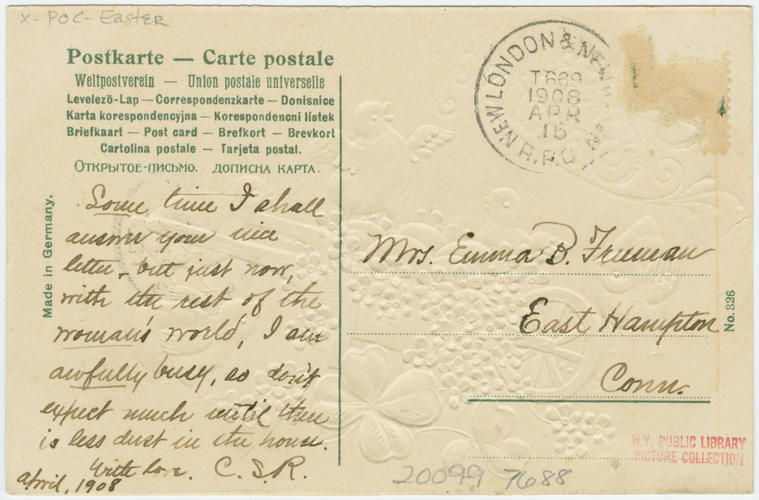 X-POC-Easter
Postkarte — Carte postale
Weltpostverein — Union postale universelle
Levelező-Lap — Correspondenzkarte — Donisnice
Karta korespondencyjna — Korespondencni lístek
Briefkaart — Post card — Brefkort — Brevkort
Cartolina postale — Tarjeta postal.
Открытое-письмо. дописна карта.
Made in Germany.
Some time I shall
answer your nice
letter, but just now,
with the rest of the
woman's world, I am
awfully busy, so don't
expect much until there
is less dust in the house.
With love. C. S. R.
April, 1908
NEW LONDON & NEW
1908
APR
16
R.P.O.
Mrs. Emma B. Freeman
East Hampton
Conn.
No. 326
N.Y. PUBLIC LIBRARY
PICTURE COLLECTION
20099 7688